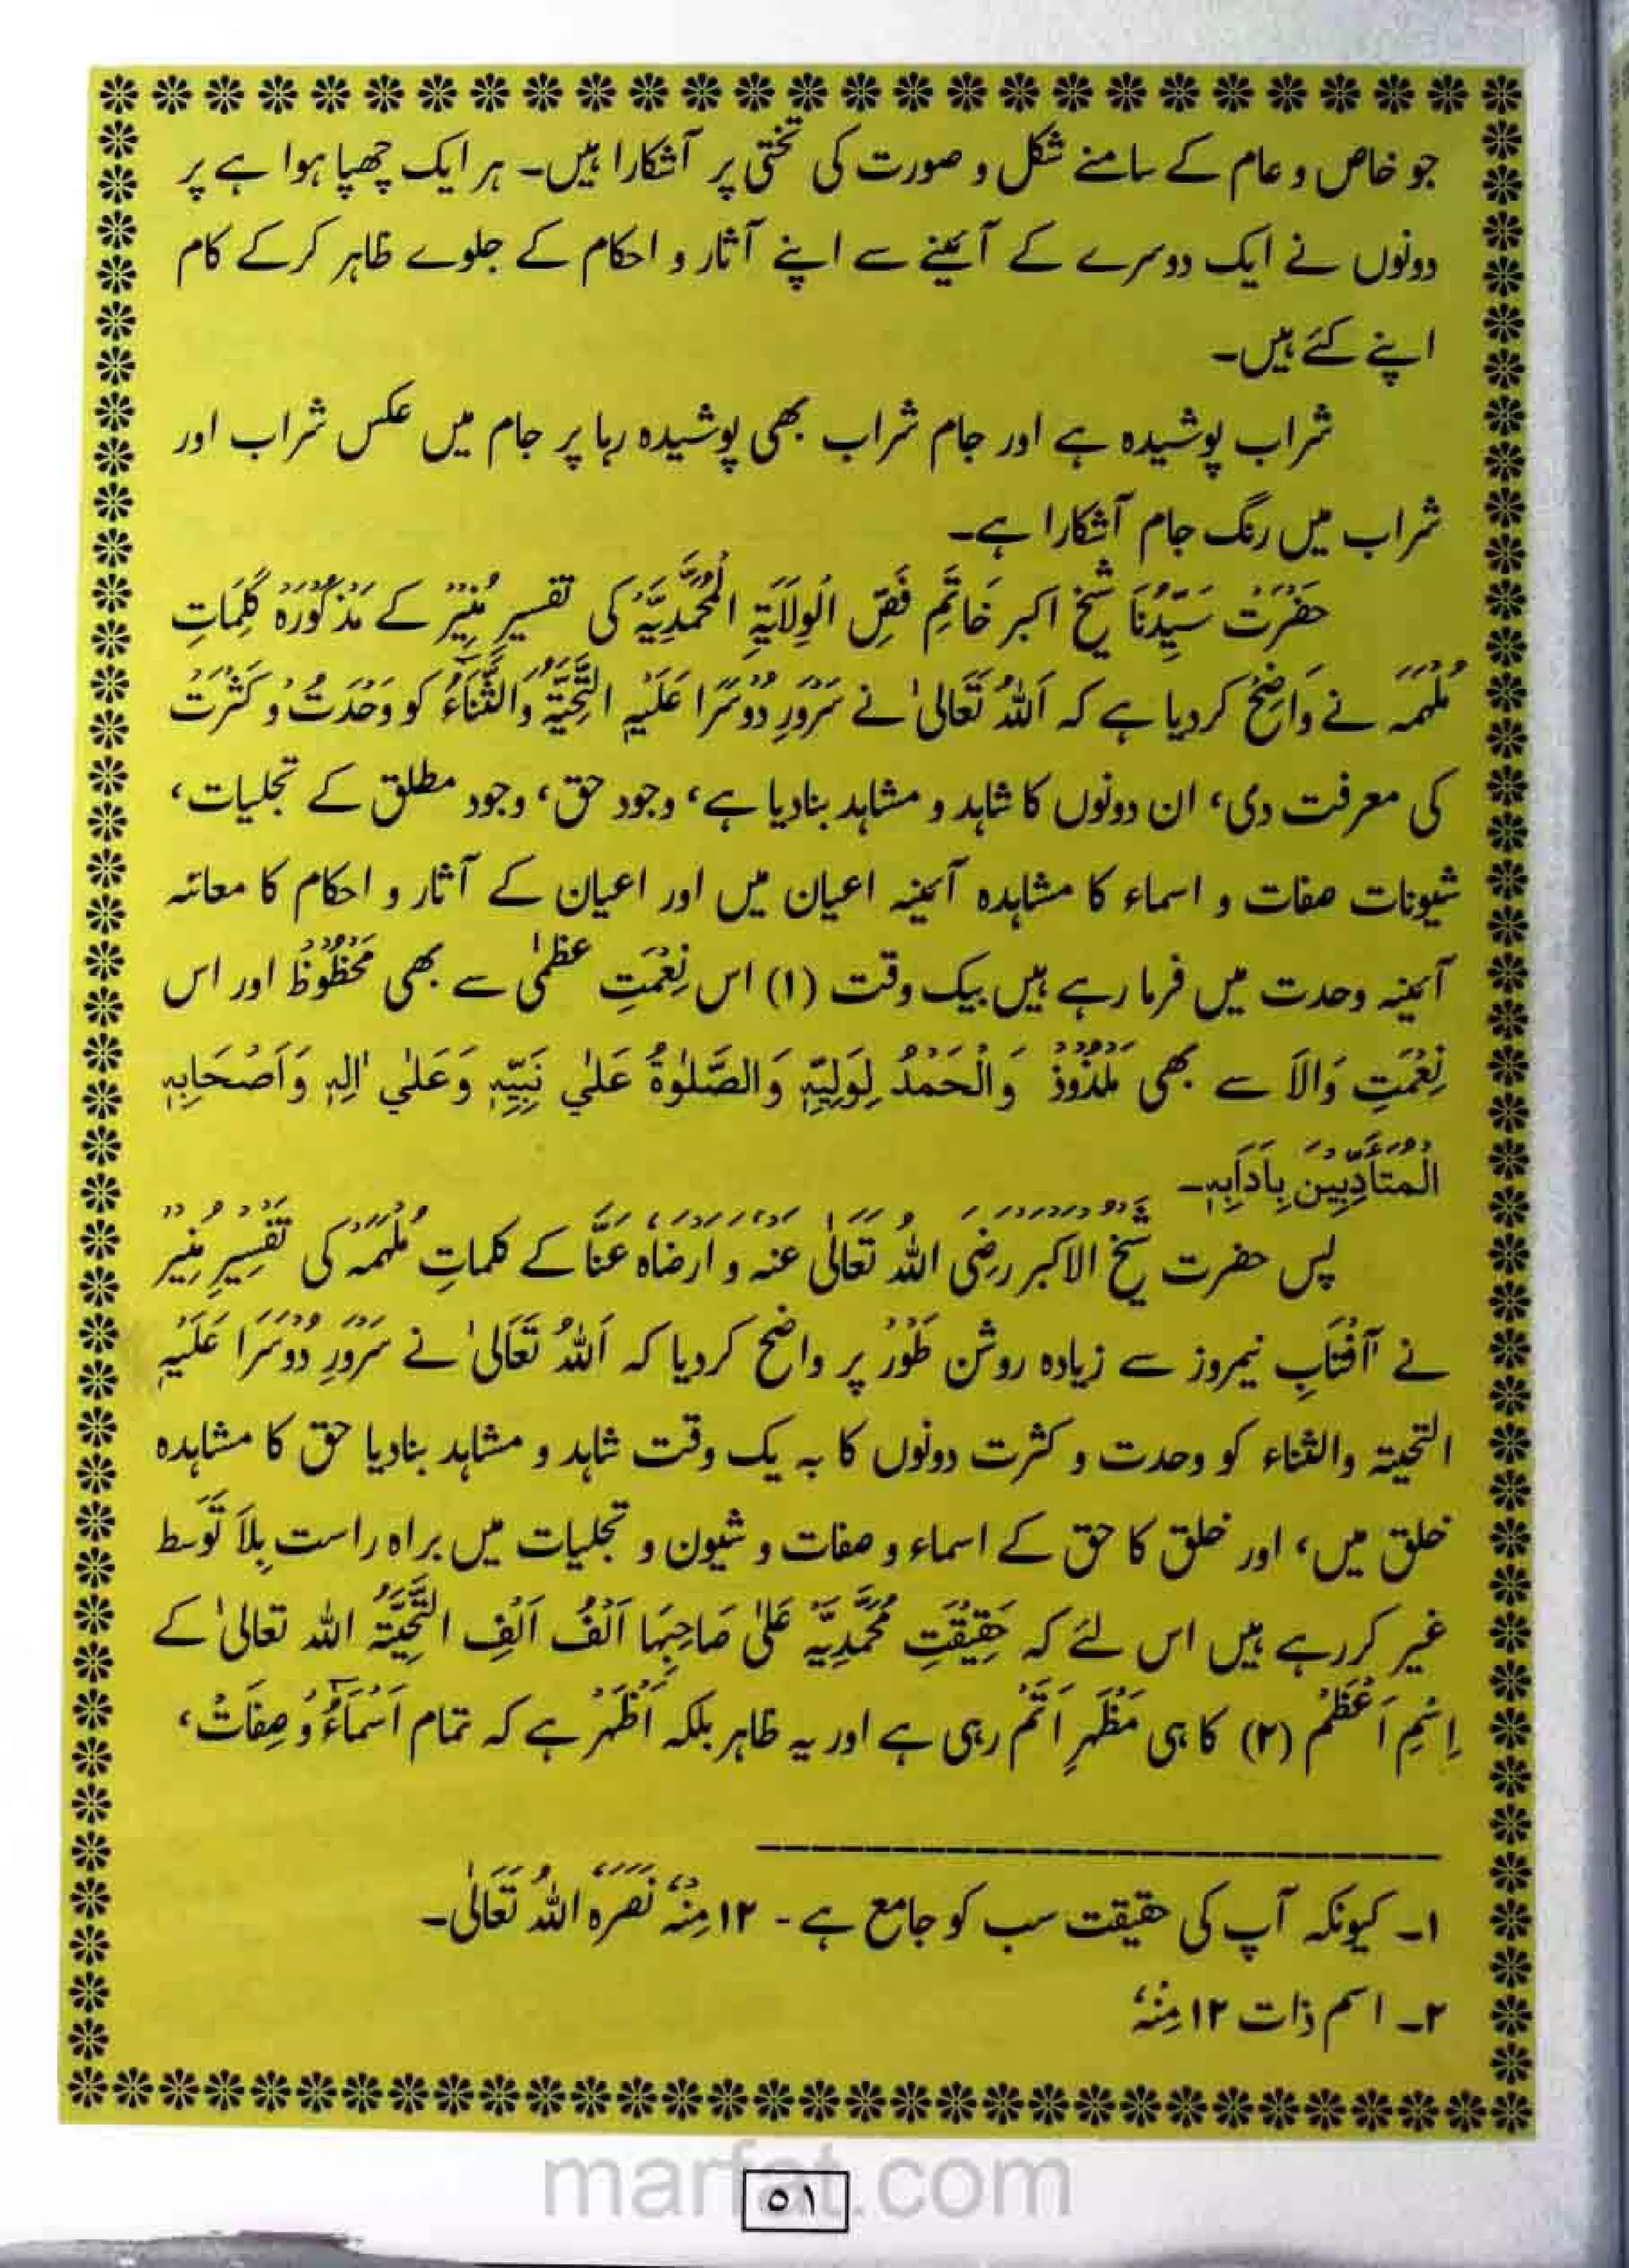 جو خاص و عام کے سامنے شکل و صورت کی تختی پر آشکارا ہیں۔ ہر ایک چھپا ہوا ہے پر
دونوں نے ایک دوسرے کے آئینے سے اپنے آثار و احکام کے جلوے ظاہر کرکے کام
اپنے کئے ہیں۔
شراب پوشیدہ ہے اور جام شراب بھی پوشیدہ رہا پر جام میں عکس شراب اور
شراب میں رنگ جام آشکارا ہے۔
حَضْرَتْ سَیِّدُنَا شیخ اکبر خَاتَمِ فَصِّ الْوِلَایَۃِ الْمُحَمَّدِیَّہْ کی تفسیر مُنِیْرْ کے مَذْکُوْرَہْ کَلِمَاتِ
مُلْہَمَہ نے وَاضِحْ کردیا ہے کہ اَللہُ تَعَالیٰ نے سَرْوَرِ دُوْسَرَا عَلَیْہِ التَّحِیَّۃُ وَالثَّنَآءُ کو وَحْدَتْ و کَثْرَتْ
کی معرفت دی، ان دونوں کا شاہد و مشاہد بنادیا ہے، وجود حق، وجود مطلق کے تجلیات،
شیونات صفات و اسماء کا مشاہدہ آئینہ اعیان میں اور اعیان کے آثار و احکام کا معائنہ
آئینہ وحدت میں فرما رہے ہیں بیک وقت (۱) اس نِعْمَتِ عظمیٰ سے بھی مَحْظُوْظْ اور اس
نِعْمَتِ وَالاَ سے بھی مَلْذُوْذْ وَالْحَمْدُ لِوَلِیِّہٖ وَالصَّلٰوۃُ عَلٰی نَبِیِّہٖ وَعَلٰی اٰلِہٖ وَاَصْحَابِہٖ
الْمُتَأَدِّبِیْنَ بِاٰدَابِہٖ۔
پس حضرت شیخ الاکبر رضِیَ اللہُ تَعَالٰی عنہ و اَرْضَاہُ عَنَّا کے کلماتِ مُلْہَمَہْ کی تَفْسِیْرِ مُنِیْرْ
نے آفْتَابِ نیمروز سے زیادہ روشن طَوْرْ پر واضح کردیا کہ اَللہُ تَعَالیٰ نے سَرْوَرِ دُوْسَرَا عَلَیْہِ
التحیتہ والثناء کو وحدت و کثرت دونوں کا بہ یک وقت شاہد و مشاہد بنادیا حق کا مشاہدہ
خلق میں، اور خلق کا حق کے اسماء و صفات و شیون و تجلیات میں براہ راست بِلاَ تَوَسط
غیر کررہے ہیں اس لئے کہ حَقِیْقَتِ مُحَمَّدِیَّہْ عَلیٰ صَاحِبِہَا اَلْفُ اَلْفِ التَّحِیَّتہْ اللہ تعالیٰ کے
اِسْمِ اَعْظَمْ (۲) کا ہی مَظْہَرِ اَتَمْ رہی ہے اور یہ ظاہر بلکہ اَظْہَرْ ہے کہ تمام اَسْمَآءُ و صِفَاتْ،
۱۔ کیونکہ آپ کی حقیقت سب کو جامع ہے - ۱۲ مِنْہُ نَصَرَہُ اللہُ تَعَالٰی۔
۲۔ اسم ذات ۱۲ مِنْہُ
marfat.com
۵۱